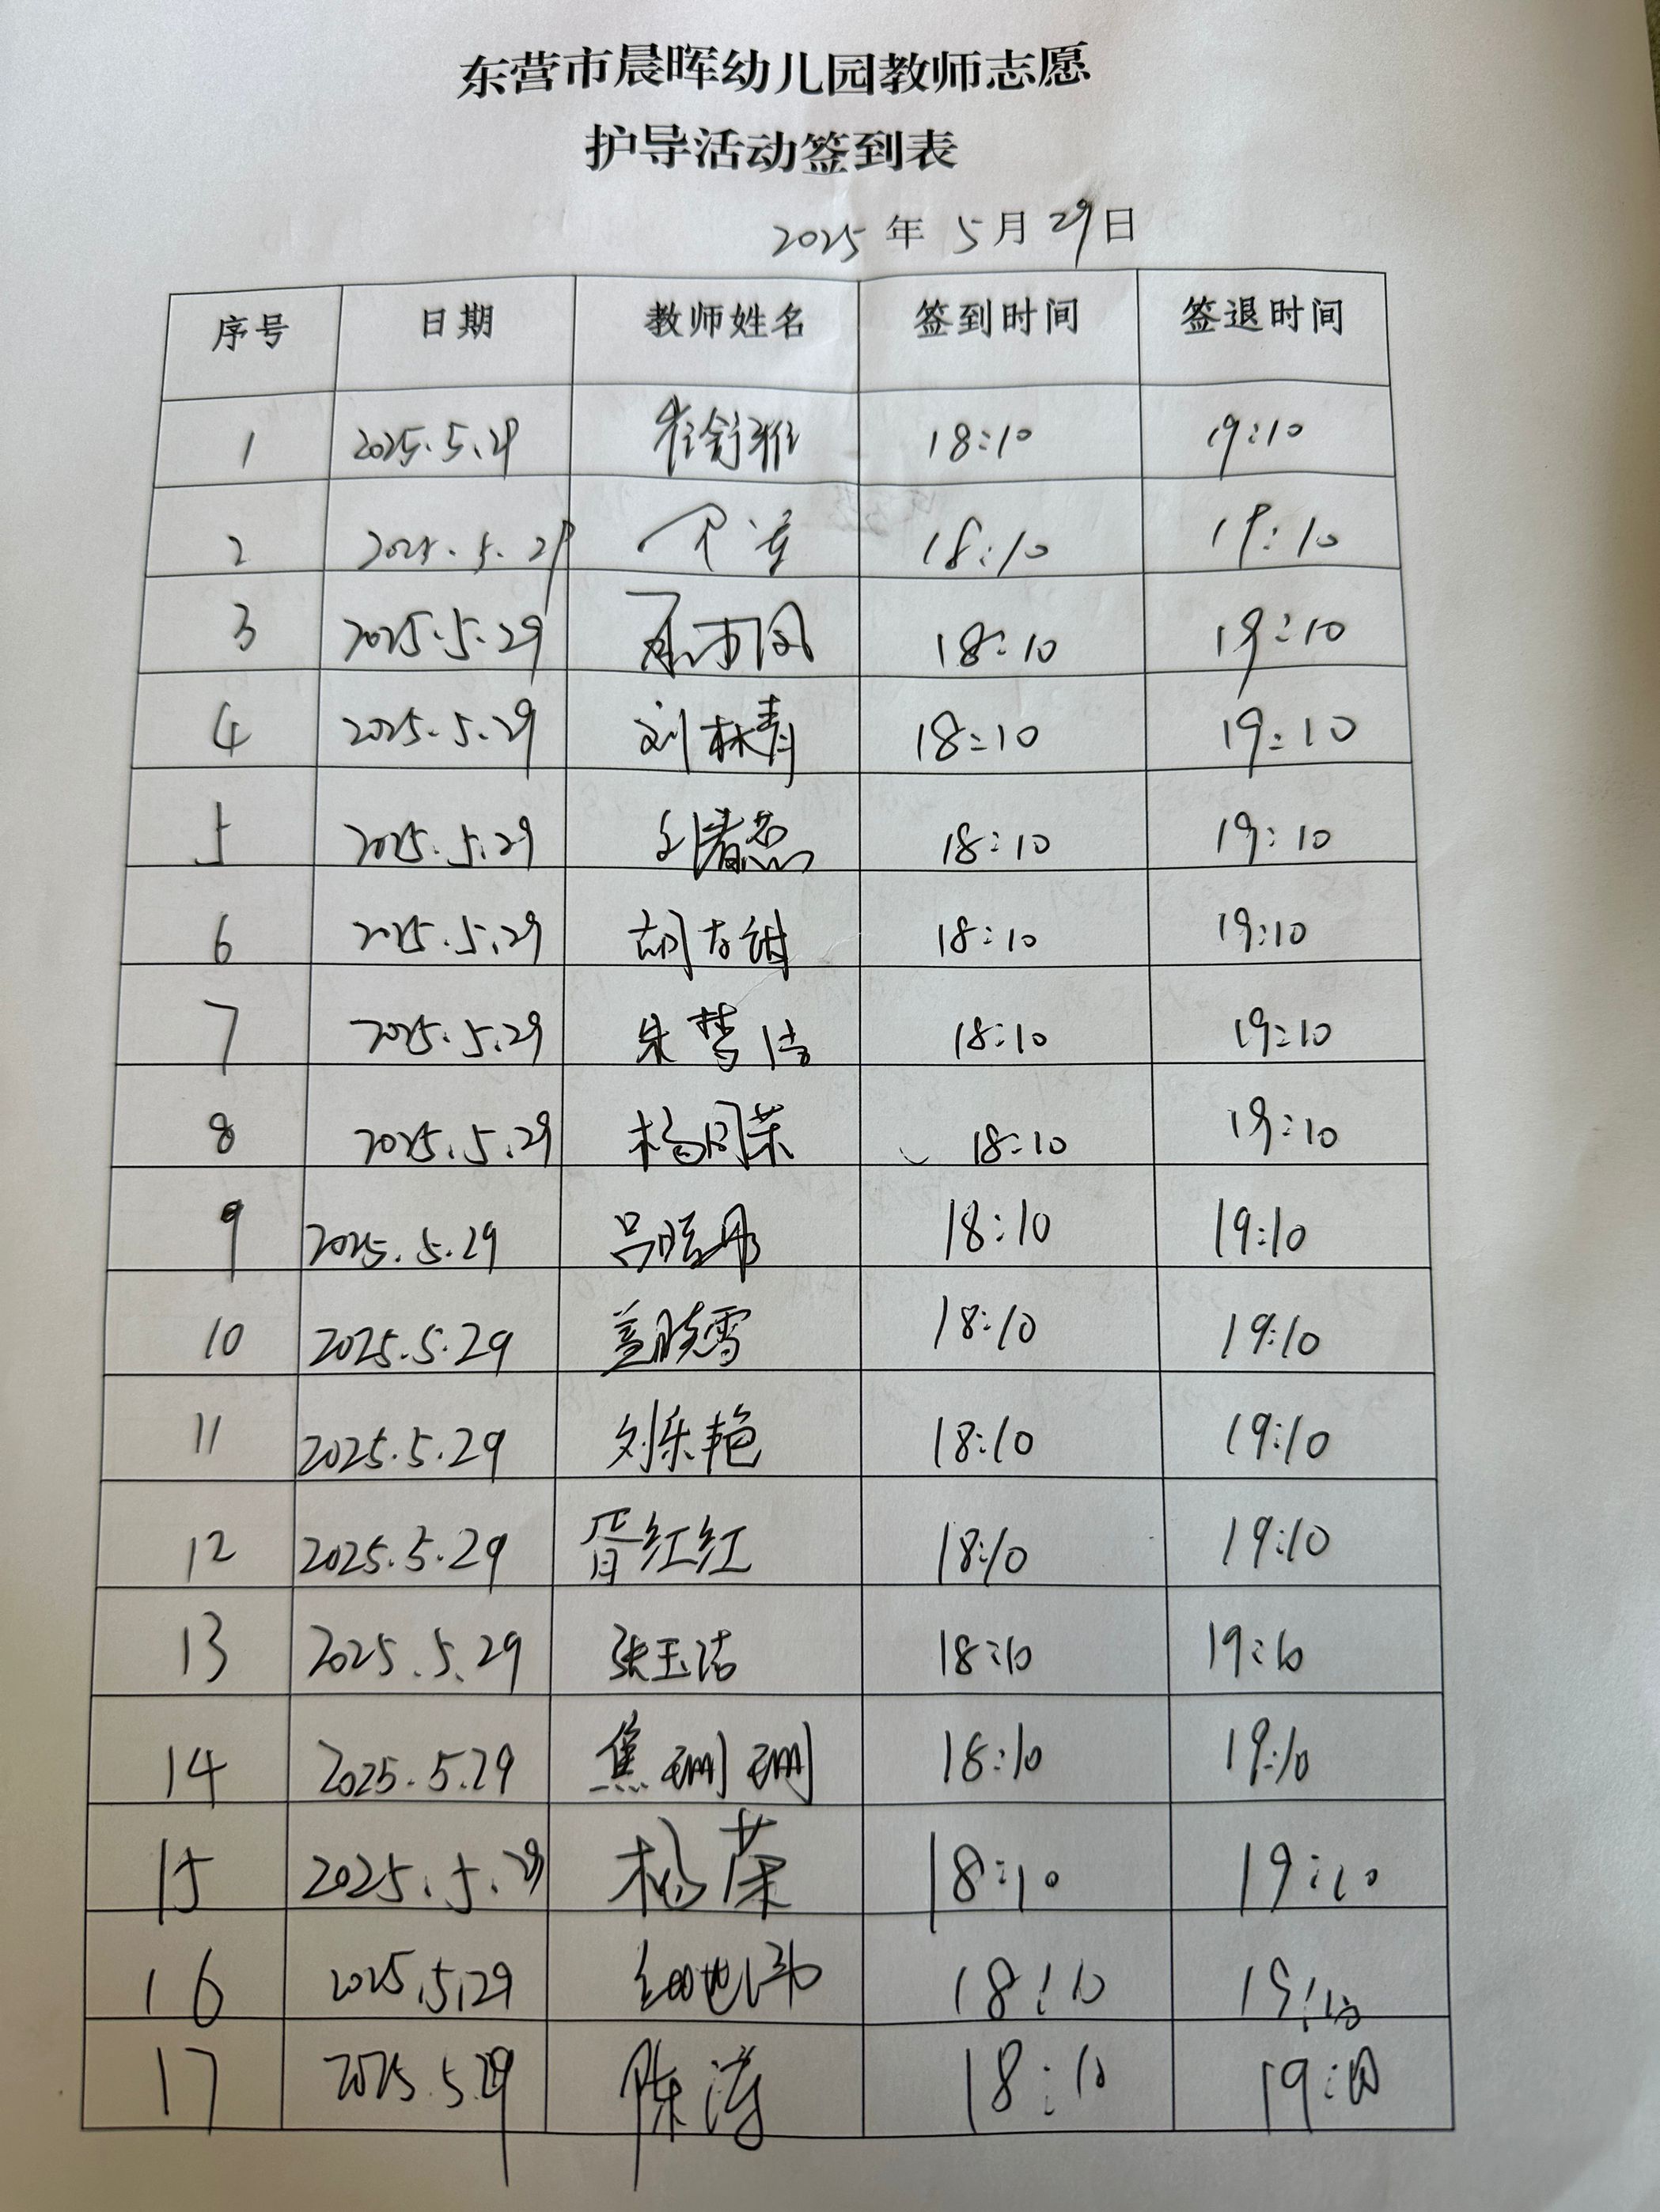 东营市晨晖幼儿园教师志愿
护导活动签到表
2025年5月29日
序号 日期 教师姓名 签到时间 签退时间
1 2025.5.29 崔舒雅 18:10 19:10
2 2025.5.29 18:10 19:10
3 2025.5.29 18:10 19:10
4 2025.5.29 刘林青 18:10 19:10
5 2025.5.29 18:10 19:10
6 2025.5.29 18:10 19:10
7 2025.5.29 朱梦洁 18:10 19:10
8 2025.5.29 18:10 19:10
9 2025.5.29 18:10 19:10
10 2025.5.29 盖晓雪 18:10 19:10
11 2025.5.29 刘乐艳 18:10 19:10
12 2025.5.29 胥红红 18:10 19:10
13 2025.5.29 张玉洁 18:10 19:10
14 2025.5.29 焦珊珊 18:10 19:10
15 2025.5.29 杨荣 18:10 19:10
16 2025.5.29 18:10 19:10
17 2025.5.29 陈涛 18:10 19:10